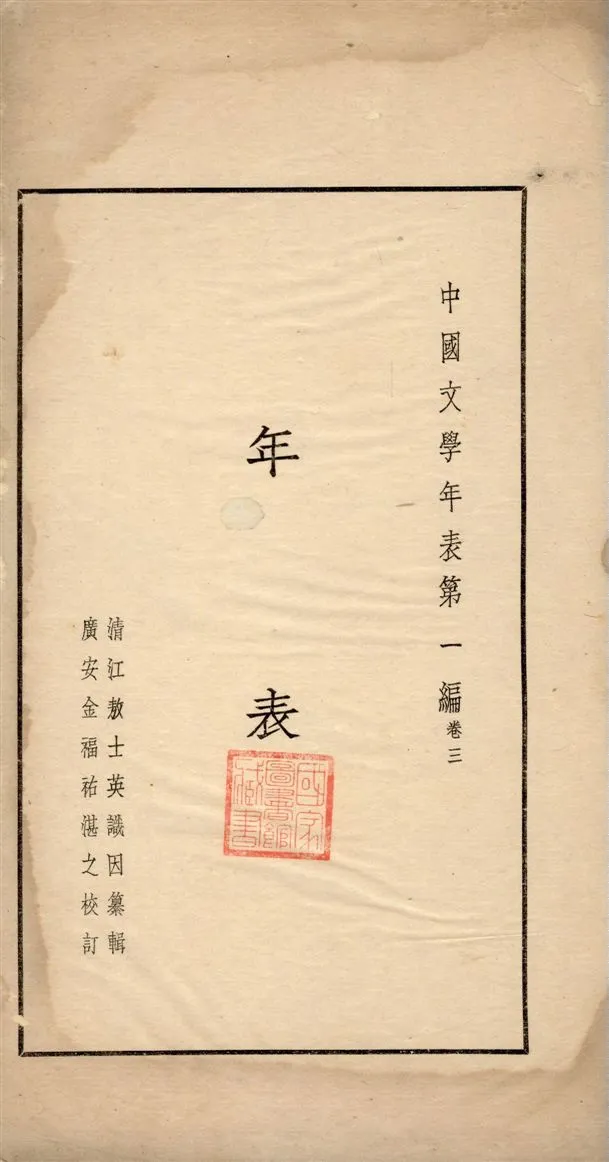 中國文學年表第一編卷三
年表
清江敖士英識因纂輯
廣安金福祐湛之校訂
國家
圖書館
藏書